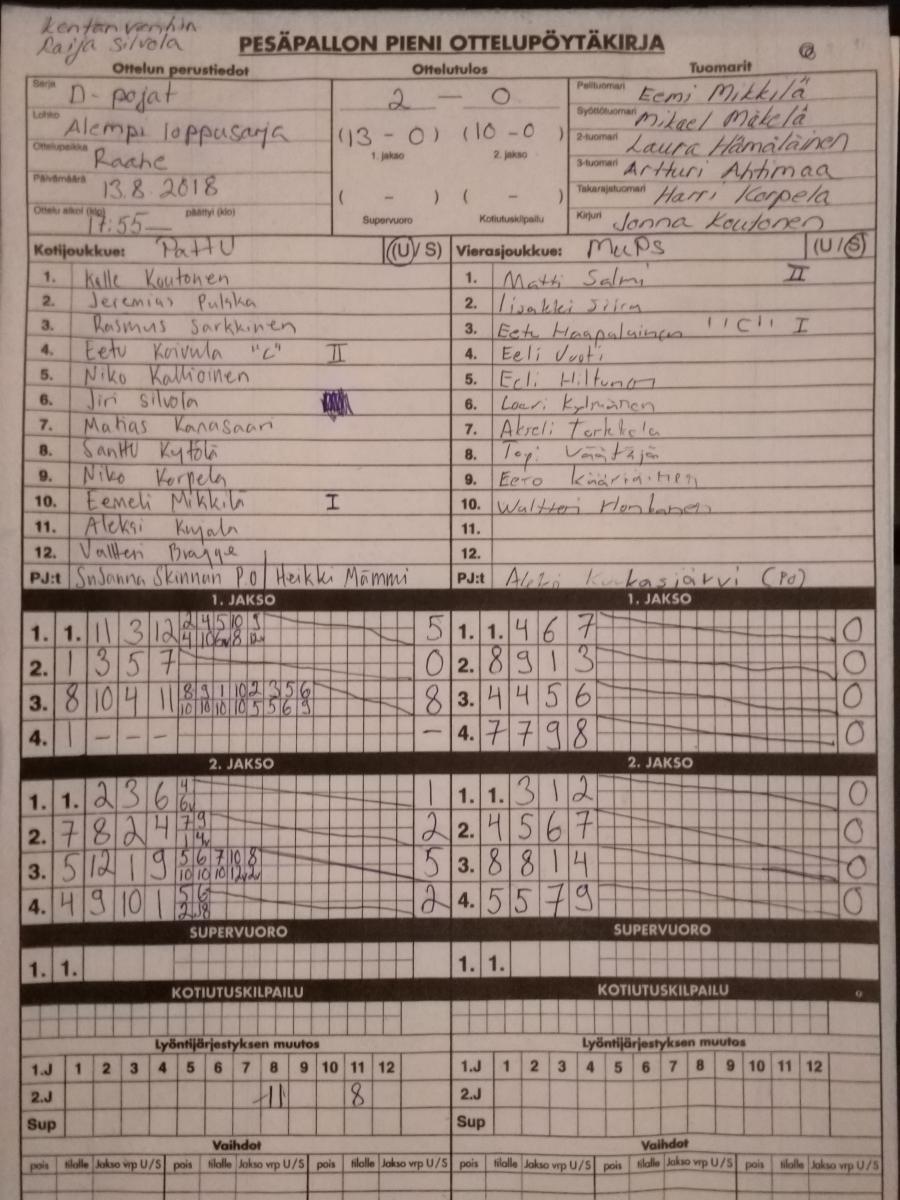 Kentän vanhin
Raija Silvola
PESÄPALLON PIENI OTTELUPÖYTÄKIRJA
Ottelun perustiedot
Sarja D-pojat
Lohko Alempi loppusarja
Ottelupaikka Raahe
Päivämäärä 13.8.2018
Ottelu alkoi (klo) 17:55 päättyi (klo) —
Ottelutulos
2 — 0
(13 - 0) (10 - 0)
1. jakso 2. jakso
( - ) ( - )
Supervuoro Kotiutuskilpailu
Tuomarit
Pelituomari Eemi Mikkilä
Syöttötuomari Mikael Mäkelä
2-tuomari Laura Hämäläinen
3-tuomari Artturi Ahtimaa
Takarajatuomari Harri Korpela
Kirjuri Jonna Koutonen
Kotijoukkue: PattU (U/S)
1. Kalle Koutonen
2. Jeremias Pulska
3. Rasmus Sarkkinen
4. Eetu Koivula "C" II
5. Niko Kallioinen
6. Jiri Silvola
7. Matias Kanasaari
8. Santtu Kytölä
9. Niko Korpela
10. Eemeli Mikkilä I
11. Aleksi Kujala
12. Valtteri Bragge
PJ:t Susanna Skinnari P.O / Heikki Mämmi
Vierasjoukkue: MuPS (U/S)
1. Matti Salmi II
2. Iisakki Siira
3. Eetu Haapalainen "C" I
4. Eeli Vuoti
5. Eeli Hiltunen
6. Lauri Kylmänen
7. Akseli Torkkela
8. Topi Väätäjä
9. Eero Kääriäinen
10. Waltteri Honkanen
11.
12.
PJ:t Aleksi Kuukasjärvi (PO)
1. JAKSO
1. 1. 11 3 12 2 4 5 10 9 5
4 10 6v 8 12v
2. 1 3 5 7 0
3. 8 10 4 11 8 9 1 10 2 3 5 6 8
10 10 10 10 5 5 6 9
4. 1 - - - -
1. JAKSO
1. 1. 4 6 7 0
2. 8 9 1 3 0
3. 4 4 5 6 0
4. 7 7 9 8 0
2. JAKSO
1. 1. 2 3 6 4 1
6v
2. 7 8 2 4 7 9 2
1 4v
3. 5 12 1 9 5 6 7 10 8 5
10 10 10 12v 2v
4. 4 9 10 1 5 6 2
2 8
2. JAKSO
1. 1. 3 1 2 0
2. 4 5 6 7 0
3. 8 8 1 4 0
4. 5 5 7 9 0
SUPERVUORO
1. 1.
SUPERVUORO
1. 1.
KOTIUTUSKILPAILU
KOTIUTUSKILPAILU
Lyöntijärjestyksen muutos
1.J 1 2 3 4 5 6 7 8 9 10 11 12
2.J 11 8
Sup
Lyöntijärjestyksen muutos
1.J 1 2 3 4 5 6 7 8 9 10 11 12
2.J
Sup
Vaihdot
pois tilalle Jakso vrp U/S pois tilalle Jakso vrp U/S pois tilalle Jakso vrp U/S
Vaihdot
pois tilalle Jakso vrp U/S pois tilalle Jakso vrp U/S pois tilalle Jakso vrp U/S